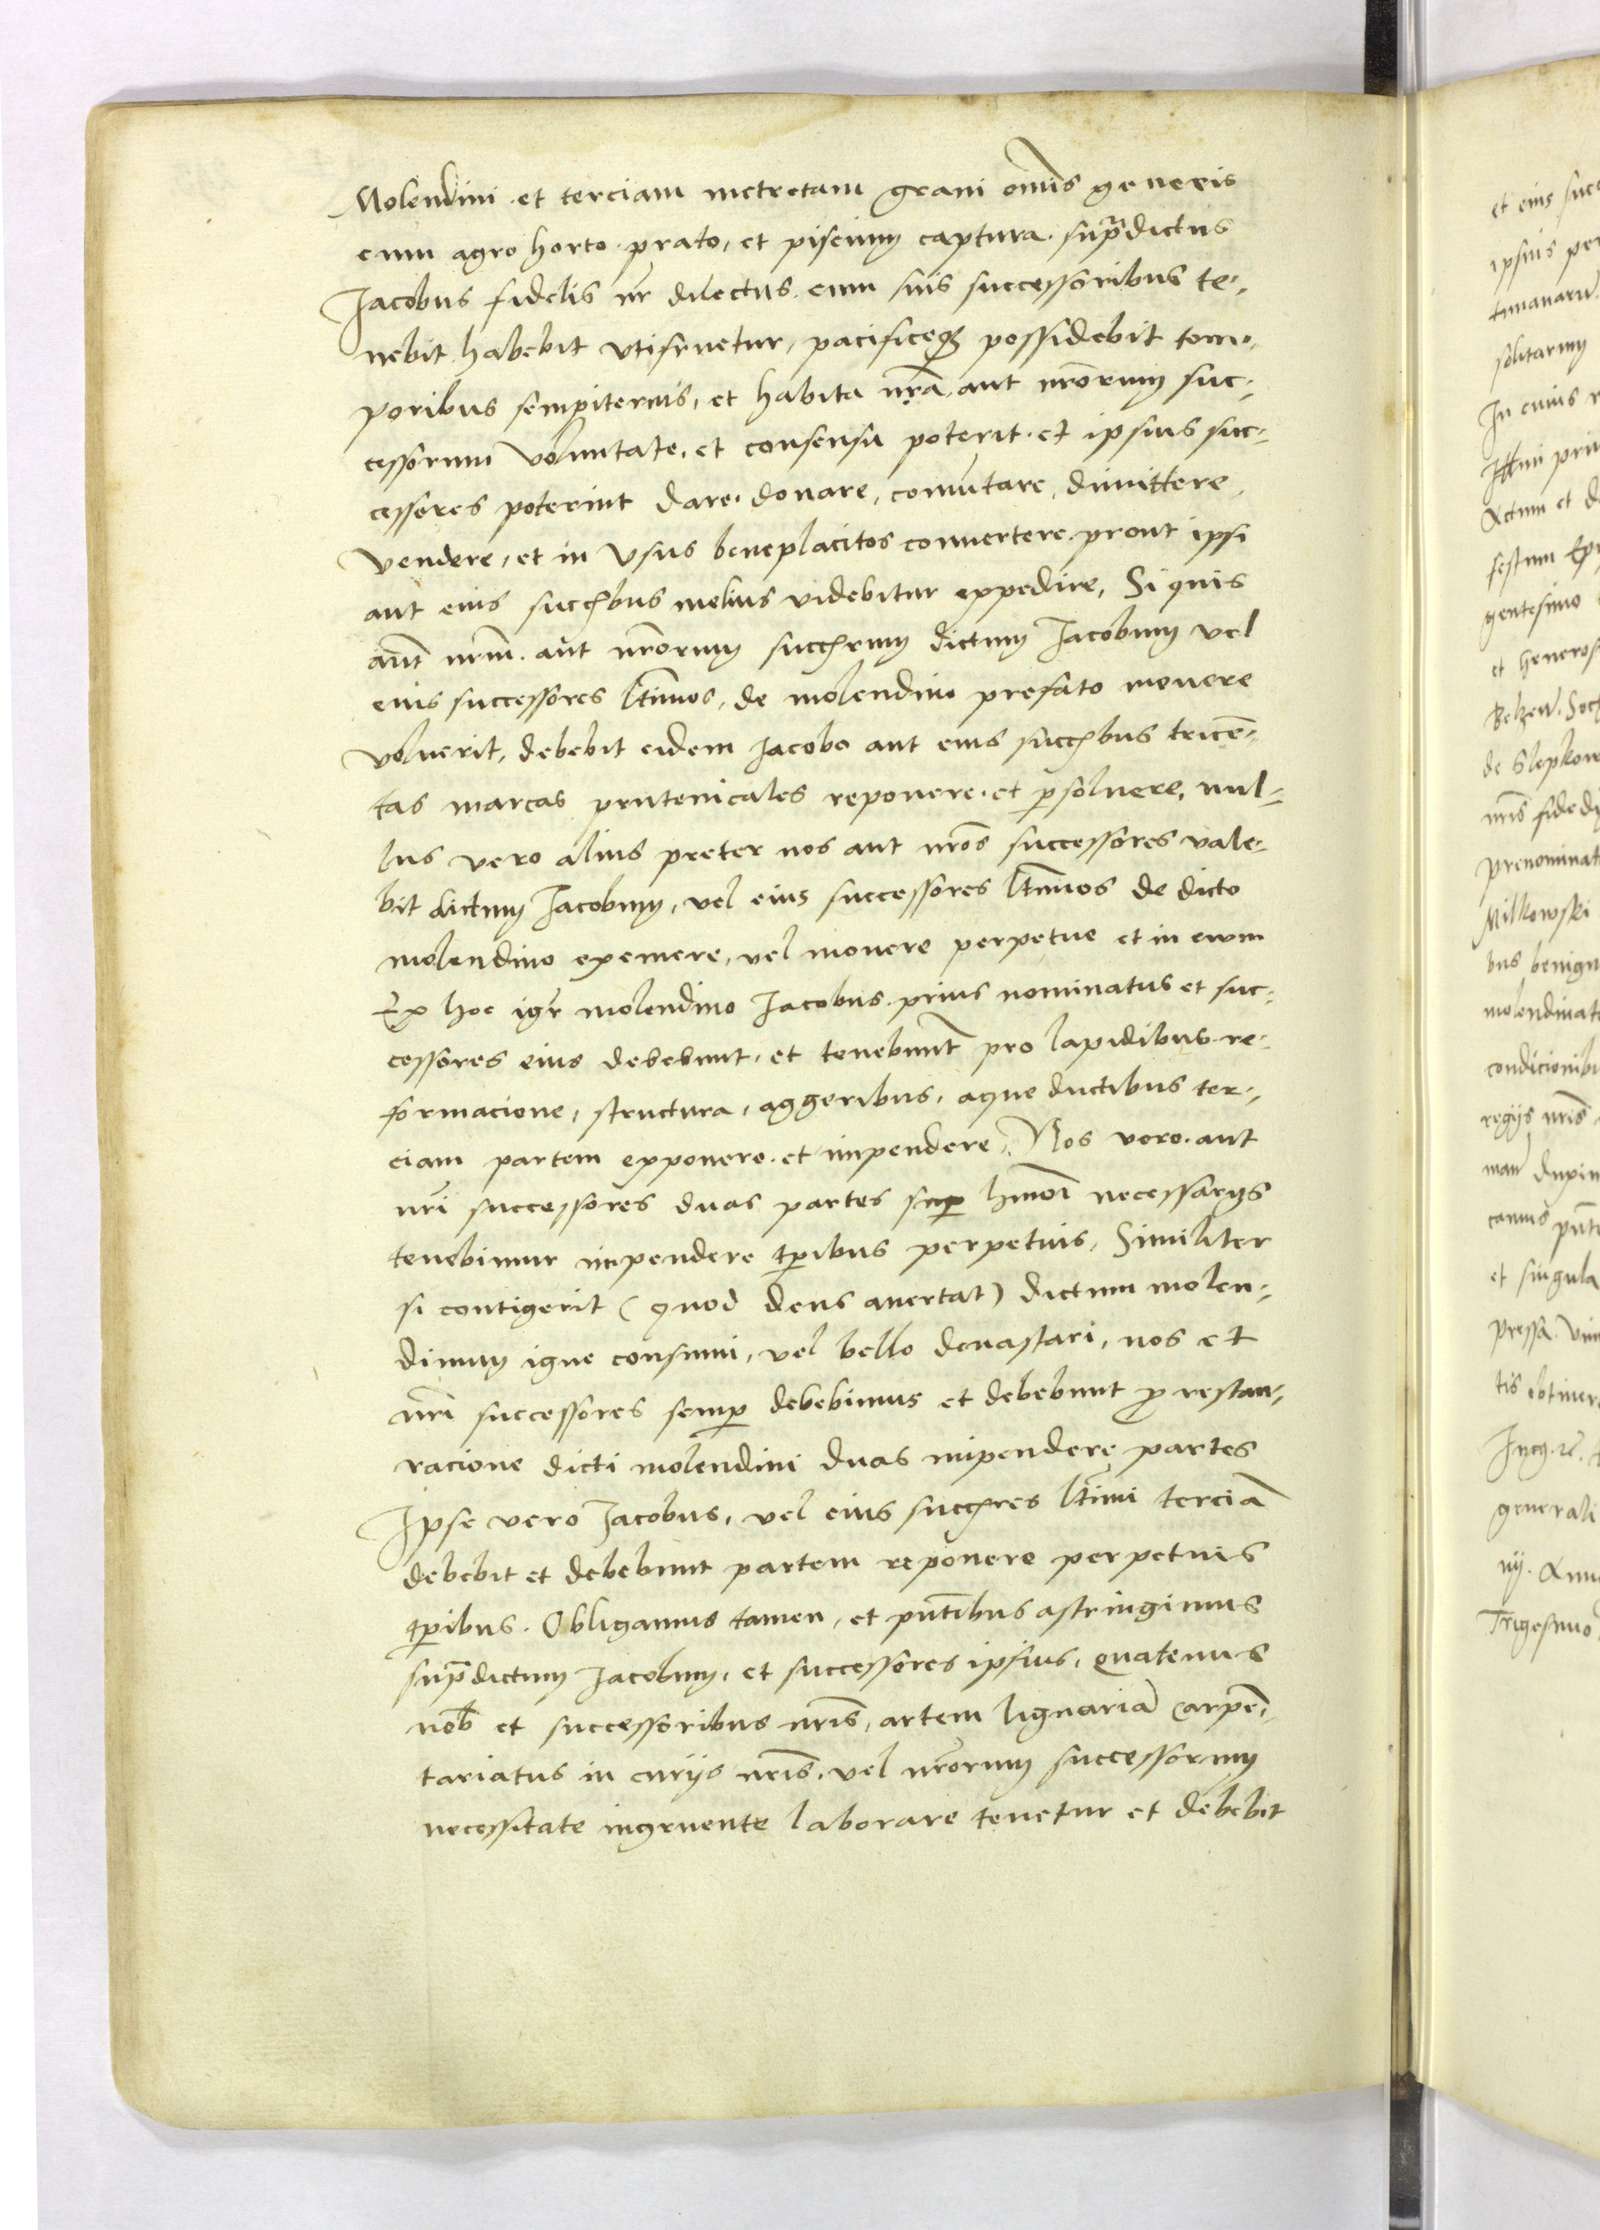 Molendini et terciam metretam grani om̄is generis
cum agro horto prato, et piscium captura. supradictus
Jacobus fidelis nr̄ dilectus. cum suis successoribus te-
nebit habebit vtifruetur, pacificeq̃ possidebit tem-
poribus sempiternis, et habita nr̄a, aut nr̄orum suc-
cessorum voluntate, et consensu poterit. et ipsius suc-
cessores poterint dare. donare, com̄utare, dimittere,
vendere, et in vsus beneplacitos conuertere. prout ipsi
aut eius succ̄bus melius videbitur expedire, Si quis
aūt nr̄m. aūt nr̄orum succ̄rum dictum Jacobum vel
eius successores l̄timos, de molendino prefato mouere
voluerit, debebit eidem Jacobo aut eius succ̄bus tricē-
tas marcas prutenicales reponere. et p̱soluere, nul-
lus vero alius preter nos aut nr̄os successores vale-
bit dictum Jacobum, vel eius successores l̄timos de dicto
molendino exemere, vel mouere perpetue et in ewm
Ex hoc igr̄ molendino Jacobus prius nominatus et suc-
cessores eius debebunt, et tenebunt̄ pro lapidibus re-
formacione, structura, aggeribus, aque ductibus ter-
ciam partem exponere. et impendere, Nos vero. aut
nr̄i successores duas partes sup̱ hmōi necessarijs
tenebimur impendere tp̄ribus perpetuis, Similiter
si contigerit (quod deus auertat) dictum molen-
dinum igne consumi, vel bello deuastari, nos et
nr̄i successores semp̱ debebimus et debebunt ꝓ restau-
racione dicti molendini duas impendere partes
Ipse vero Jacobus, vel eius succ̄res l̄timi terciā
debebit et debebunt partem reponere perpetuis
tp̄ribus. Obligamus tamen, et pn̄tibus astringimus
supradictum Jacobum, et successores ipsius, quatenus
nob̄ et successoribus nr̄is, artem lignariā Carpē-
tariatus in curijs nr̄is. vel nr̄orum successorum
necessitate ingruente laborare tenetur et debebit